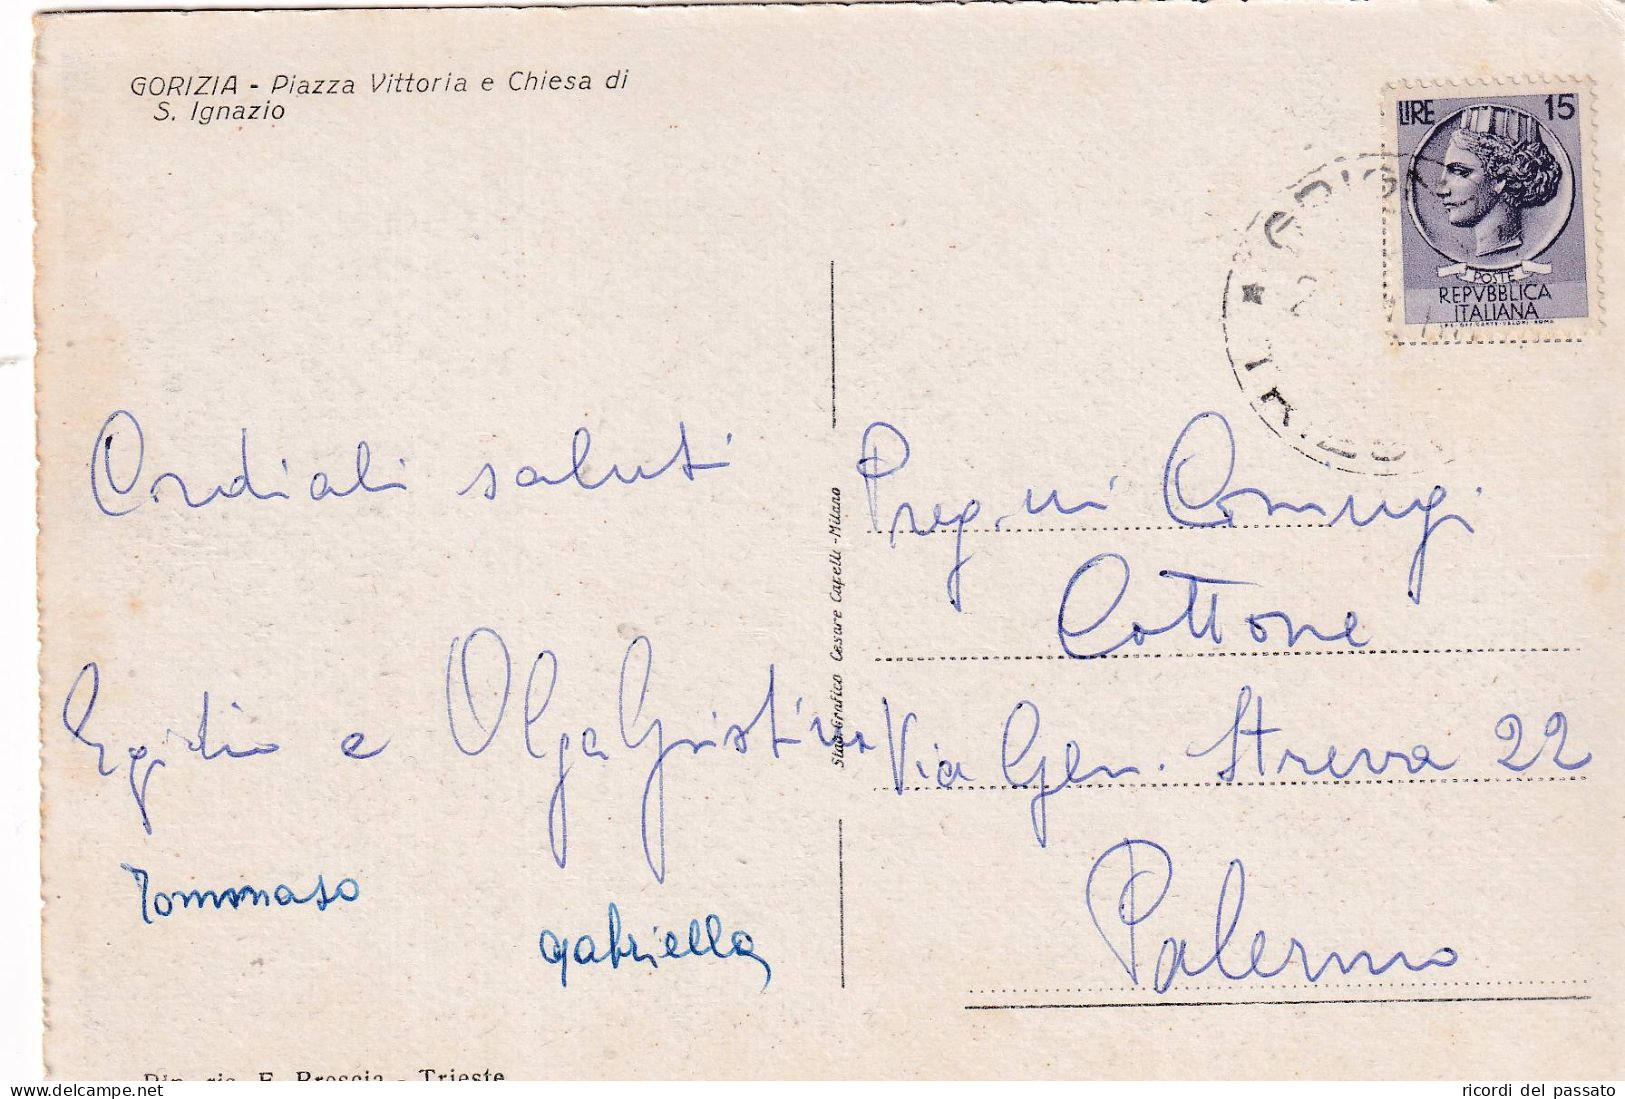 GORIZIA - Piazza Vittoria e Chiesa di
S. Ignazio
LIRE 15
POSTE
REPVBBLICA
ITALIANA
Cordiali saluti
Egidio e Olga Giustina
Tommaso
Gabriella
Stab. Grafico Cesare Capelli - Milano
Preg.mi Coniugi
Cottone
Via Gen. Streva 22
Palermo
Dip. gis. F. Brescia - Trieste
www.delcampe.net
ricordi del passato